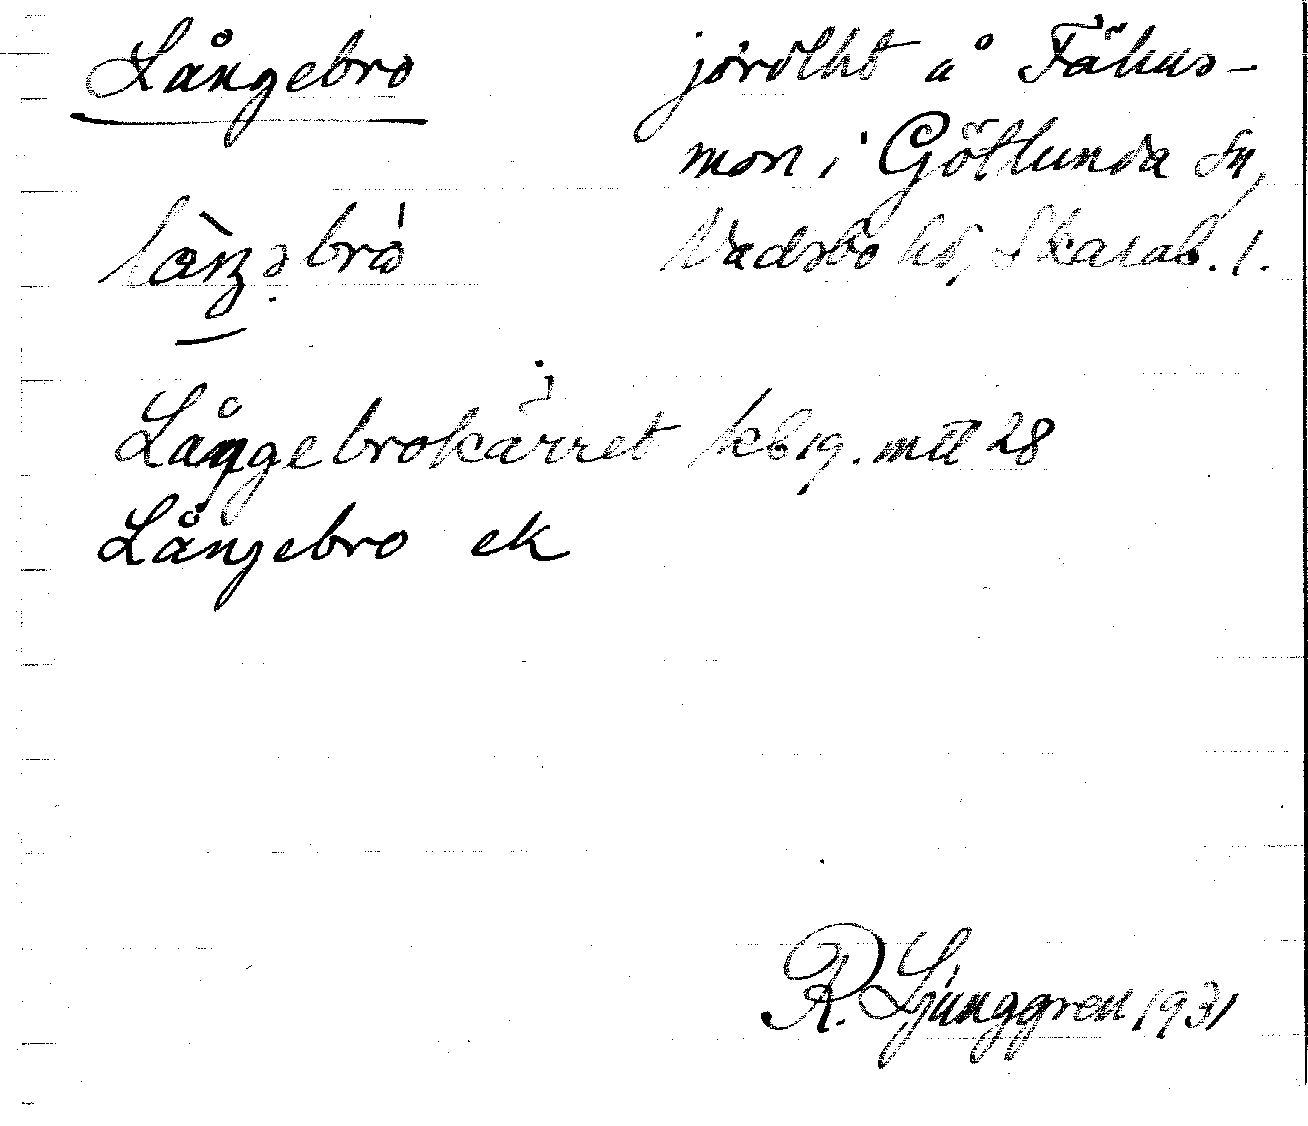 Långebro
jordlht å Fähus-
mon i Götlunda sn,
Vadsbo hd, Skarab. l.
Långebrokärret kbrg. mtl 28
Långebro ek
R. Ljunggren 1931